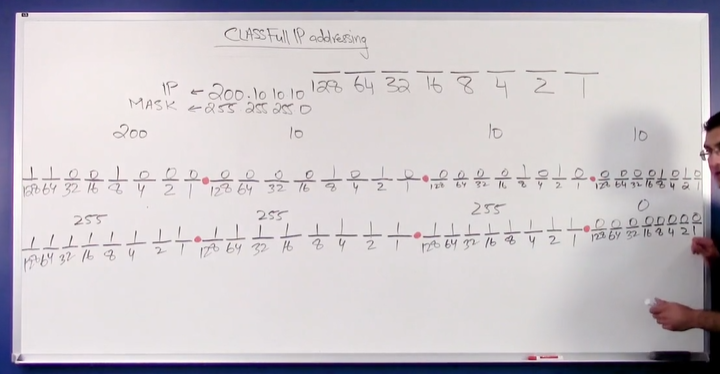 CLASSFull IP addressing
128 64 32 16 8 4 2 1
IP ← 200.10 10 10
MASK ← 255 255 255 0
200 10 10 10
1 1 0 0 1 0 0 0 . 0 0 0 0 1 0 1 0 . 0 0 0 0 1 0 1 0 . 0 0 0 0 1 0 1 0
128 64 32 16 8 4 2 1 128 64 32 16 8 4 2 1 128 64 32 16 8 4 2 1 128 64 32 16 8 4 2 1
255 255 255 0
1 1 1 1 1 1 1 1 . 1 1 1 1 1 1 1 1 . 1 1 1 1 1 1 1 1 . 0 0 0 0 0 0 0 0
128 64 32 16 8 4 2 1 128 64 32 16 8 4 2 1 128 64 32 16 8 4 2 1 128 64 32 16 8 4 2 1